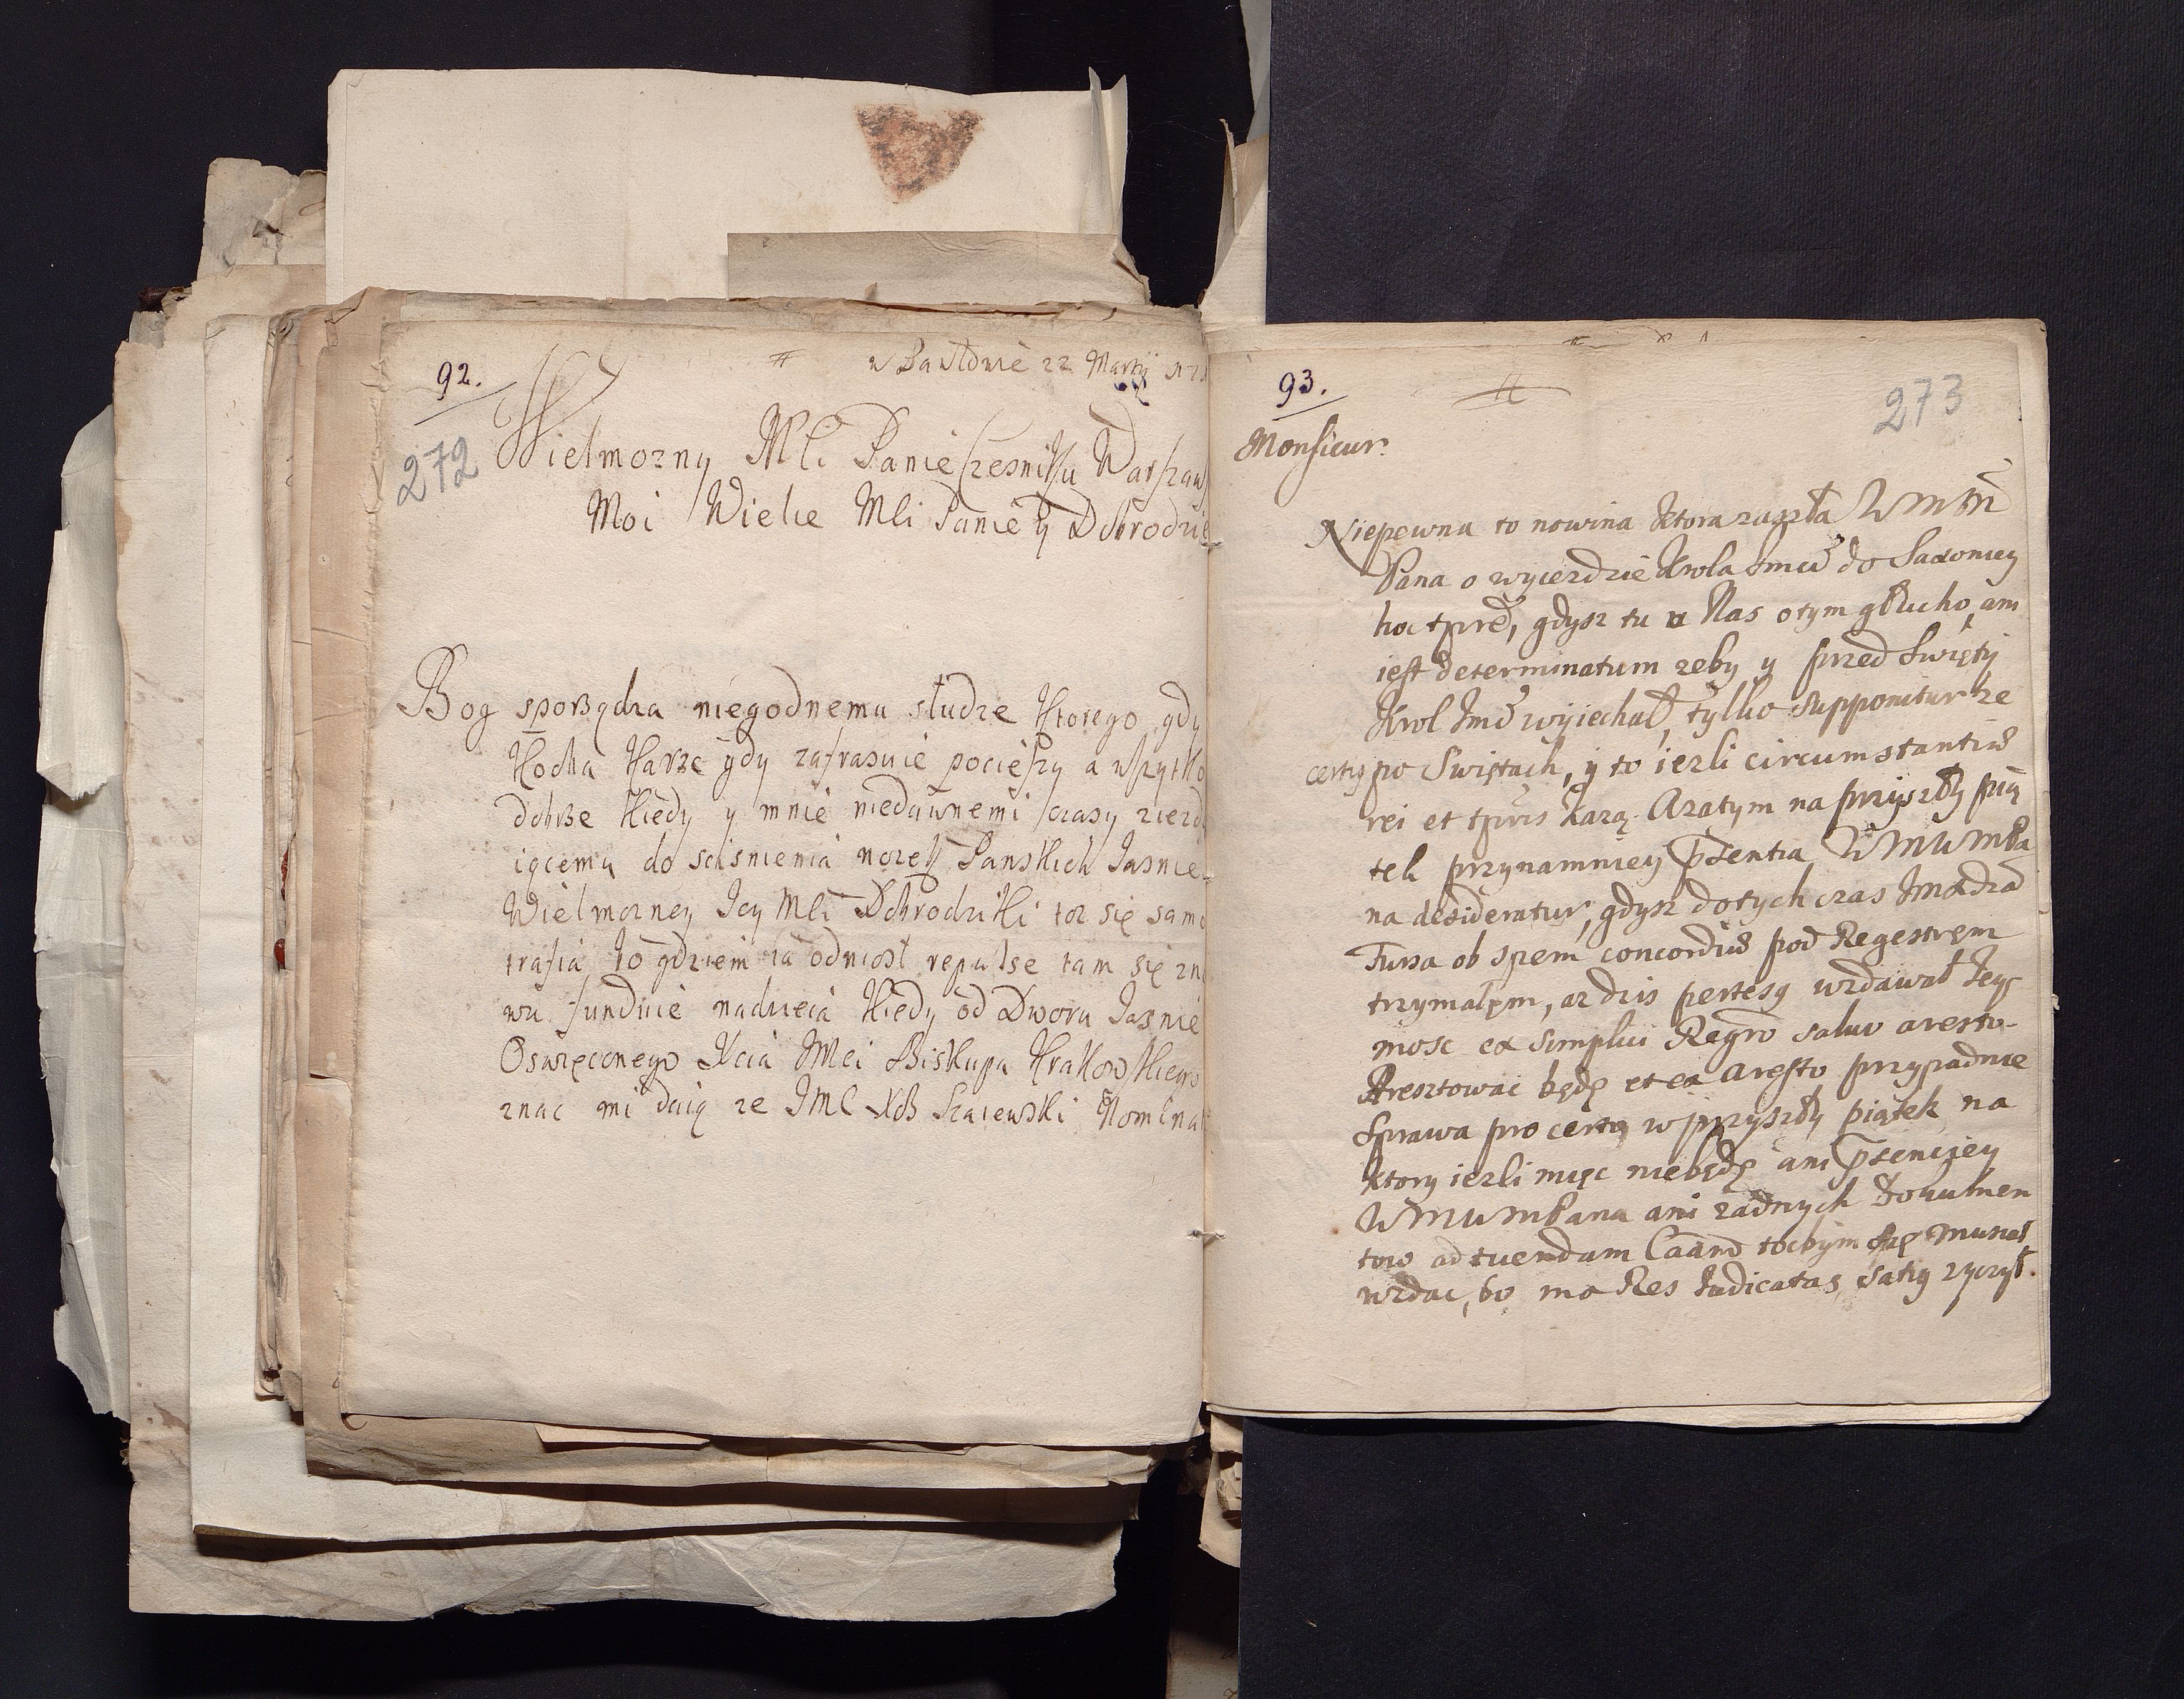 92.
272
w Pawłowie 22 Martij
Wielmozny Mci Panie Czesniku Warszaw
Moi Wielce Mci Panie y Dobrodzie
Bog sporządza niegodnemu słudze Ktorego gdy
Kocha Karze gdy zafrasuie pocieszy a wszytko
dobrze Kiedy y mnie niedawnemi czasy ziezd
iącemu do scisnienia nozek Panskich Jasnie
Wielmozney Jey Mci Dobrodziki toz się samo
trafia, to gdziem ia odniosł repulse tam się zno
wu funduie nadzieia Kiedy od Dworu Jasnie
Oswięconego Xcia JMci Biskupa Krakowskiego
znac mi daią ze JMC Xdz Szaiewski Nomina
93.
273
Monsieur
Niepewna to nowina Ktora zaszła WMM
Pana o wyiezdzie Krola Jmci do Saxoniey
hoc tpre, gdysz tu u Nas o tym głucho, ani
iest determinatum zeby y przed Swięty
Krol Jmc wyiechał, tylko supponitur ze
certo po Swiętach, y to iezli circumstantiæ
rei et tpris Karzą. A zatym na przyszły pią
tek przynamniey Psentia WMWMPa
na desideratur, gdysz dotych czas
Tursa ob spem concordiæ pod Regestręm
trzymałęm, az dzis pertesy wzdawał Jego
mosc ex simplici Regro salvo aresto
Aresztowac będę et ex Aresto przypadnie
Sprawa pro certo w przyszły piątek na
Ktory iezli mięc niebędę ani Psenciey
WMWMPana ani zadnych Dokumen
tow ad tuendam Caam tocbym się musiał
wzdac, bo ma Res Judicatas, zycził.